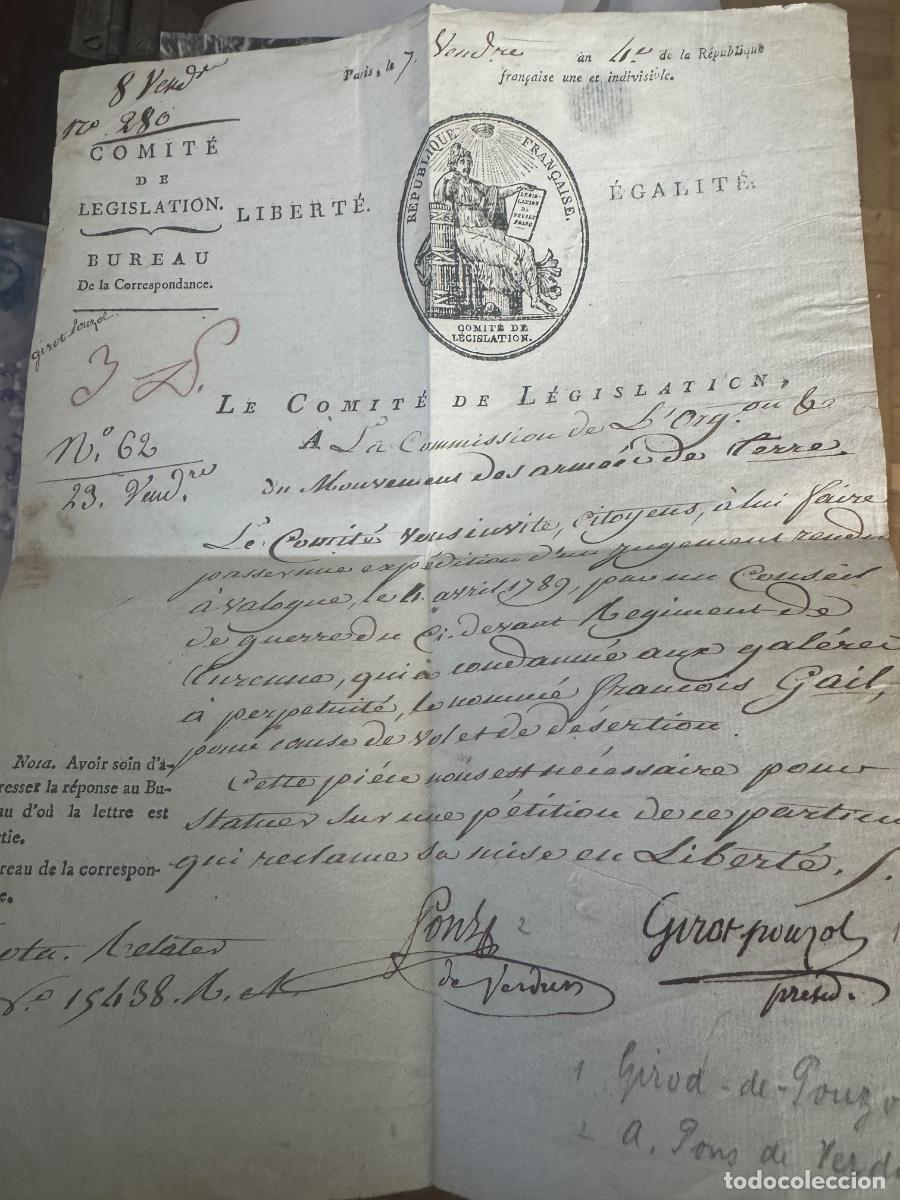 8 Vendre
No 280
Paris, le 7. Vendre an 4e de la République
française une et indivisible.
COMITÉ
DE
LEGISLATION.
BUREAU
De la Correspondance.
LIBERTÉ.
RÉPUBLIQUE FRANÇAISE.
LÉGIS-
LATION
DU
PEUPLE
FRANÇ
COMITÉ DE
LÉGISLATION.
ÉGALITÉ.
girot pouzol.
3 D.
No. 62
23. Vendre
LE COMITÉ DE LÉGISLATION,
A La Commission de L'Orgon &
du Mouvement des armées de terre.
Le Comité vous invite, citoyens, à lui faire
passer une expédition d'un jugement rendu
à Valogne, le 4. avril 1789, par un Conseil
de guerre du Ci-devant Regiment de
Turenne, qui a condamné aux galéres
à perpetuité, le nommé françois Gail,
pour cause de vol et de désertion.
Cette piéce nous est nécessaire pour
statuer sur une pétition de ce particu
qui reclame sa mise en Liberté. /.
Nota. Avoir soin d'a-
resser la réponse au Bu-
au d'où la lettre est
tie.
reau de la correspon-
e.
Pons 2
de Verdun
Girot-pouzol 1
présid.
No 15438.
1 Girod-de-Pouzo
2 A. Pons de Verdu
todocoleccion
todocoleccion.net